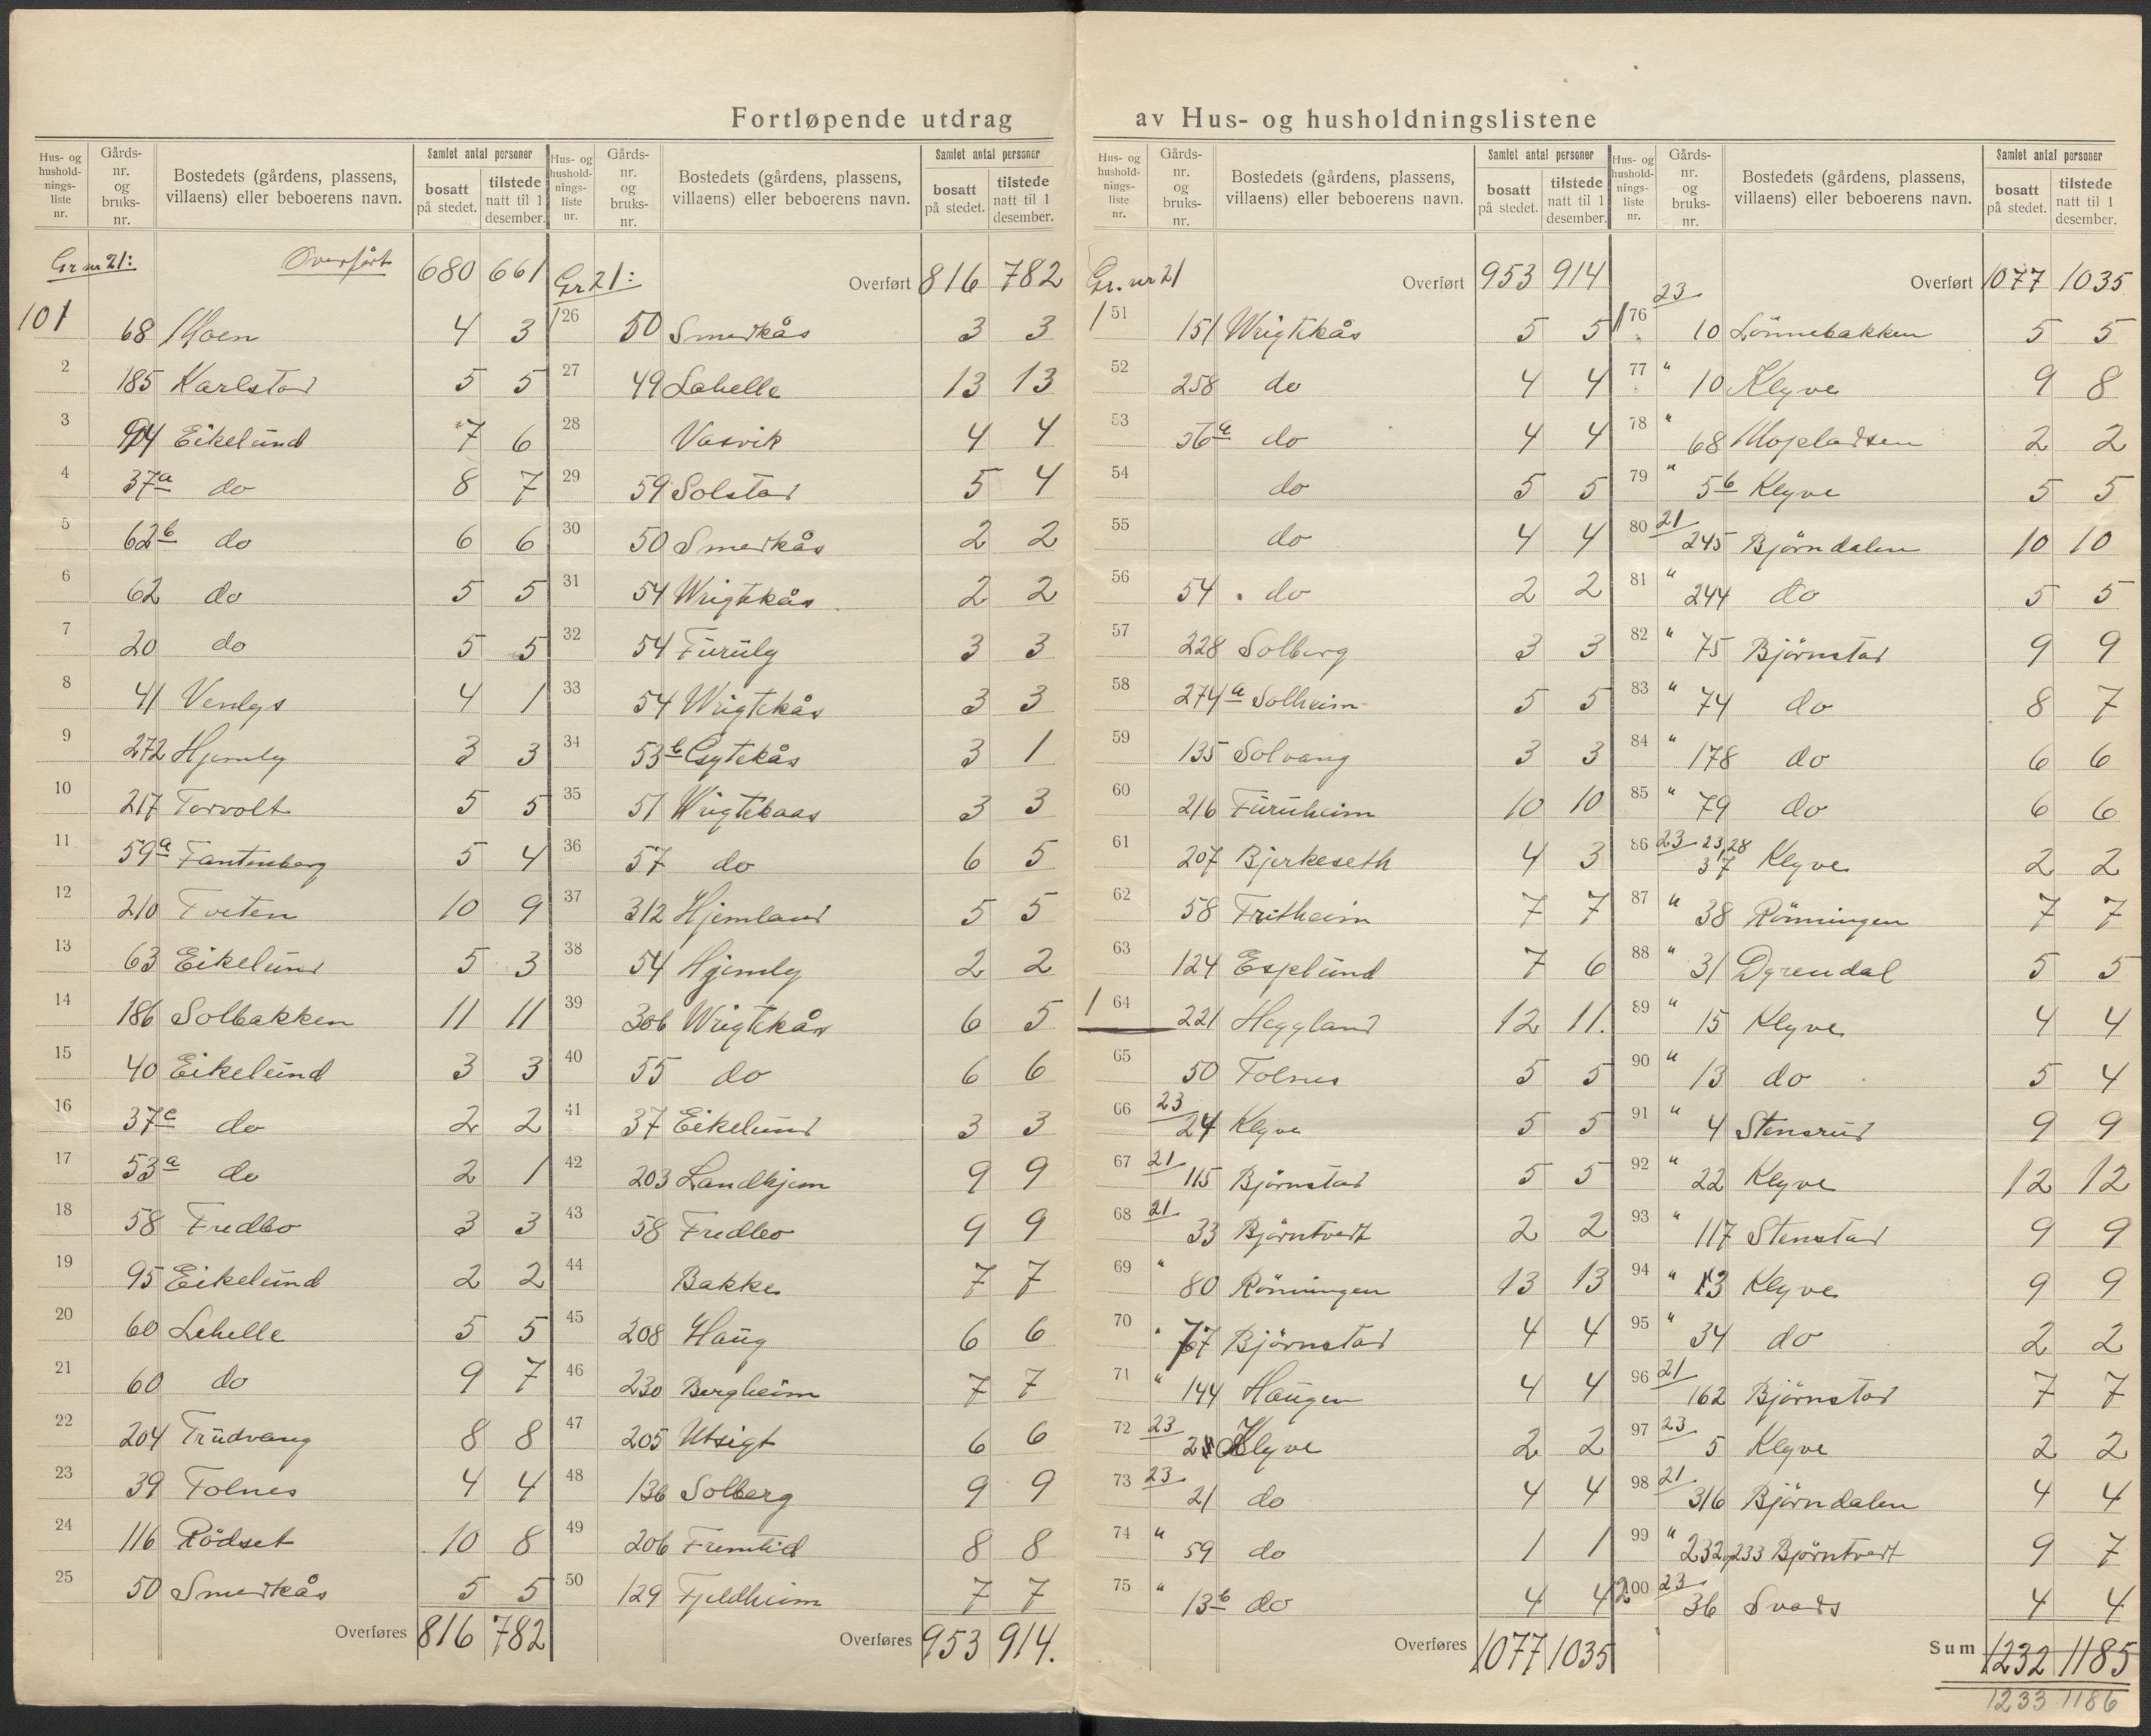 Fortløpende utdrag av Hus- og husholdningslistene
Hus- og hushold-nings-liste nr. Gårds-nr. og bruks-nr. Bostedets (gårdens, plassens, villaens) eller beboerens navn. Samlet antal personer bosatt på stedet. tilstede natt til 1 desember.
Gr nr 21: Overført 680 661
101 68 Moen 4 3
2 185 Karlstad 5 5
3 94 Eikelund 7 6
4 37a do 8 7
5 62b do 6 6
6 62 do 5 5
7 20 do 5 5
8 41 Venlys 4 1
9 272 Hjemly 3 3
10 217 Torvolt 5 5
11 59a Fantenberg 5 4
12 210 Tveten 10 9
13 63 Eikelund 5 3
14 186 Solbakken 11 11
15 40 Eikelund 3 3
16 37c do 2 2
17 53a do 2 1
18 58 Fredbo 3 3
19 95 Eikelund 2 2
20 60 Lahelle 5 5
21 60 do 9 7
22 204 Trudvang 8 8
23 39 Folnes 4 4
24 116 Rödset 10 8
25 50 Smedkås 5 5
Overføres 816 782
Hus- og hushold-nings-liste nr. Gårds-nr. og bruks-nr. Bostedets (gårdens, plassens, villaens) eller beboerens navn. Samlet antal personer bosatt på stedet. tilstede natt til 1 desember.
Gr 21: Overført 816 782
126 50 Smedkås 3 3
27 49 Lahelle 13 13
28 Vasvik 4 4
29 59 Solstad 5 4
30 50 Smedkås 2 2
31 54 Wrigtkås 2 2
32 54 Furuly 3 3
33 54 Wrigtekås 3 3
34 53b 3 1
35 51 Wrigtekaas 3 3
36 57 do 6 5
37 312 Hjemland 5 5
38 54 Hjemly 2 2
39 306 Wrigtekås 6 5
40 55 do 6 6
41 37 Eikelund 3 3
42 203 Landhjem 9 9
43 58 Fredbo 9 9
44 Bakke 7 7
45 208 Haug 6 6
46 230 Bergheim 7 7
47 205 Utsigt 6 6
48 136 Solberg 9 9
49 206 Fremtid 8 8
50 129 Fjeldheim 7 7
Overføres 953 914.
Hus- og hushold-nings-liste nr. Gårds-nr. og bruks-nr. Bostedets (gårdens, plassens, villaens) eller beboerens navn. Samlet antal personer bosatt på stedet. tilstede natt til 1 desember.
Gr. nr 21 Overført 953 914
151 151 Wrigtkås 5 5
52 258 do 4 4
53 56a do 4 4
54 do 5 5
55 do 4 4
56 54 do 2 2
57 228 Solberg 3 3
58 274a Solheim 5 5
59 135 Solvang 3 3
60 216 Furuheim 10 10
61 207 Bjerkeseth 4 3
62 58 Fritheim 7 7
63 124 Esplund 7 6
164 221 Heggland 12 11.
65 50 Folnes 5 5
66 23 24 Klyve 5 5
67 21 115 Björnstad 5 5
68 21 33 Björntvedt 2 2
69 " 80 Rönningen 13 13
70 " 77 Björnstad 4 4
71 " 144 Haugen 4 4
72 23 Klyve 2 2
73 23 21 do 4 4
74 " 59 do 1 1
75 " 13b do 4 4
Overføres 1077 1035
Hus- og hushold-nings-liste nr. Gårds-nr. og bruks-nr. Bostedets (gårdens, plassens, villaens) eller beboerens navn. Samlet antal personer bosatt på stedet. tilstede natt til 1 desember.
Overført 1077 1035
176 23 10 Lönnebakken 5 5
77 " 10 Klyve 9 8
78 " 68 Mopladsen 2 2
79 " 5b Klyve 5 5
80 21 245 Björndalen 10 10
81 " 244 do 5 5
82 " 75 Björnstad 9 9
83 " 74 do 8 7
84 " 178 do 6 6
85 " 79 do 6 6
86 23 23,28 37 Klyve 2 2
87 " 38 Rönningen 7 7
88 " 31 Dyrendal 5 5
89 " 15 Klyve 4 4
90 " 13 do 5 4
91 " 4 Stensrud 9 9
92 " 22 Klyve 12 12
93 " 117 Stenstad 9 9
94 " 13 Klyve 9 9
95 " 34 do 2 2
96 21 162 Björnstad 7 7
97 23 5 Klyve 2 2
98 21 316 Björndalen 4 4
99 " 232 og 233 Björntvedt 9 7
200 23 36 Svads 4 4
Sum 1232 1185
1233 1186